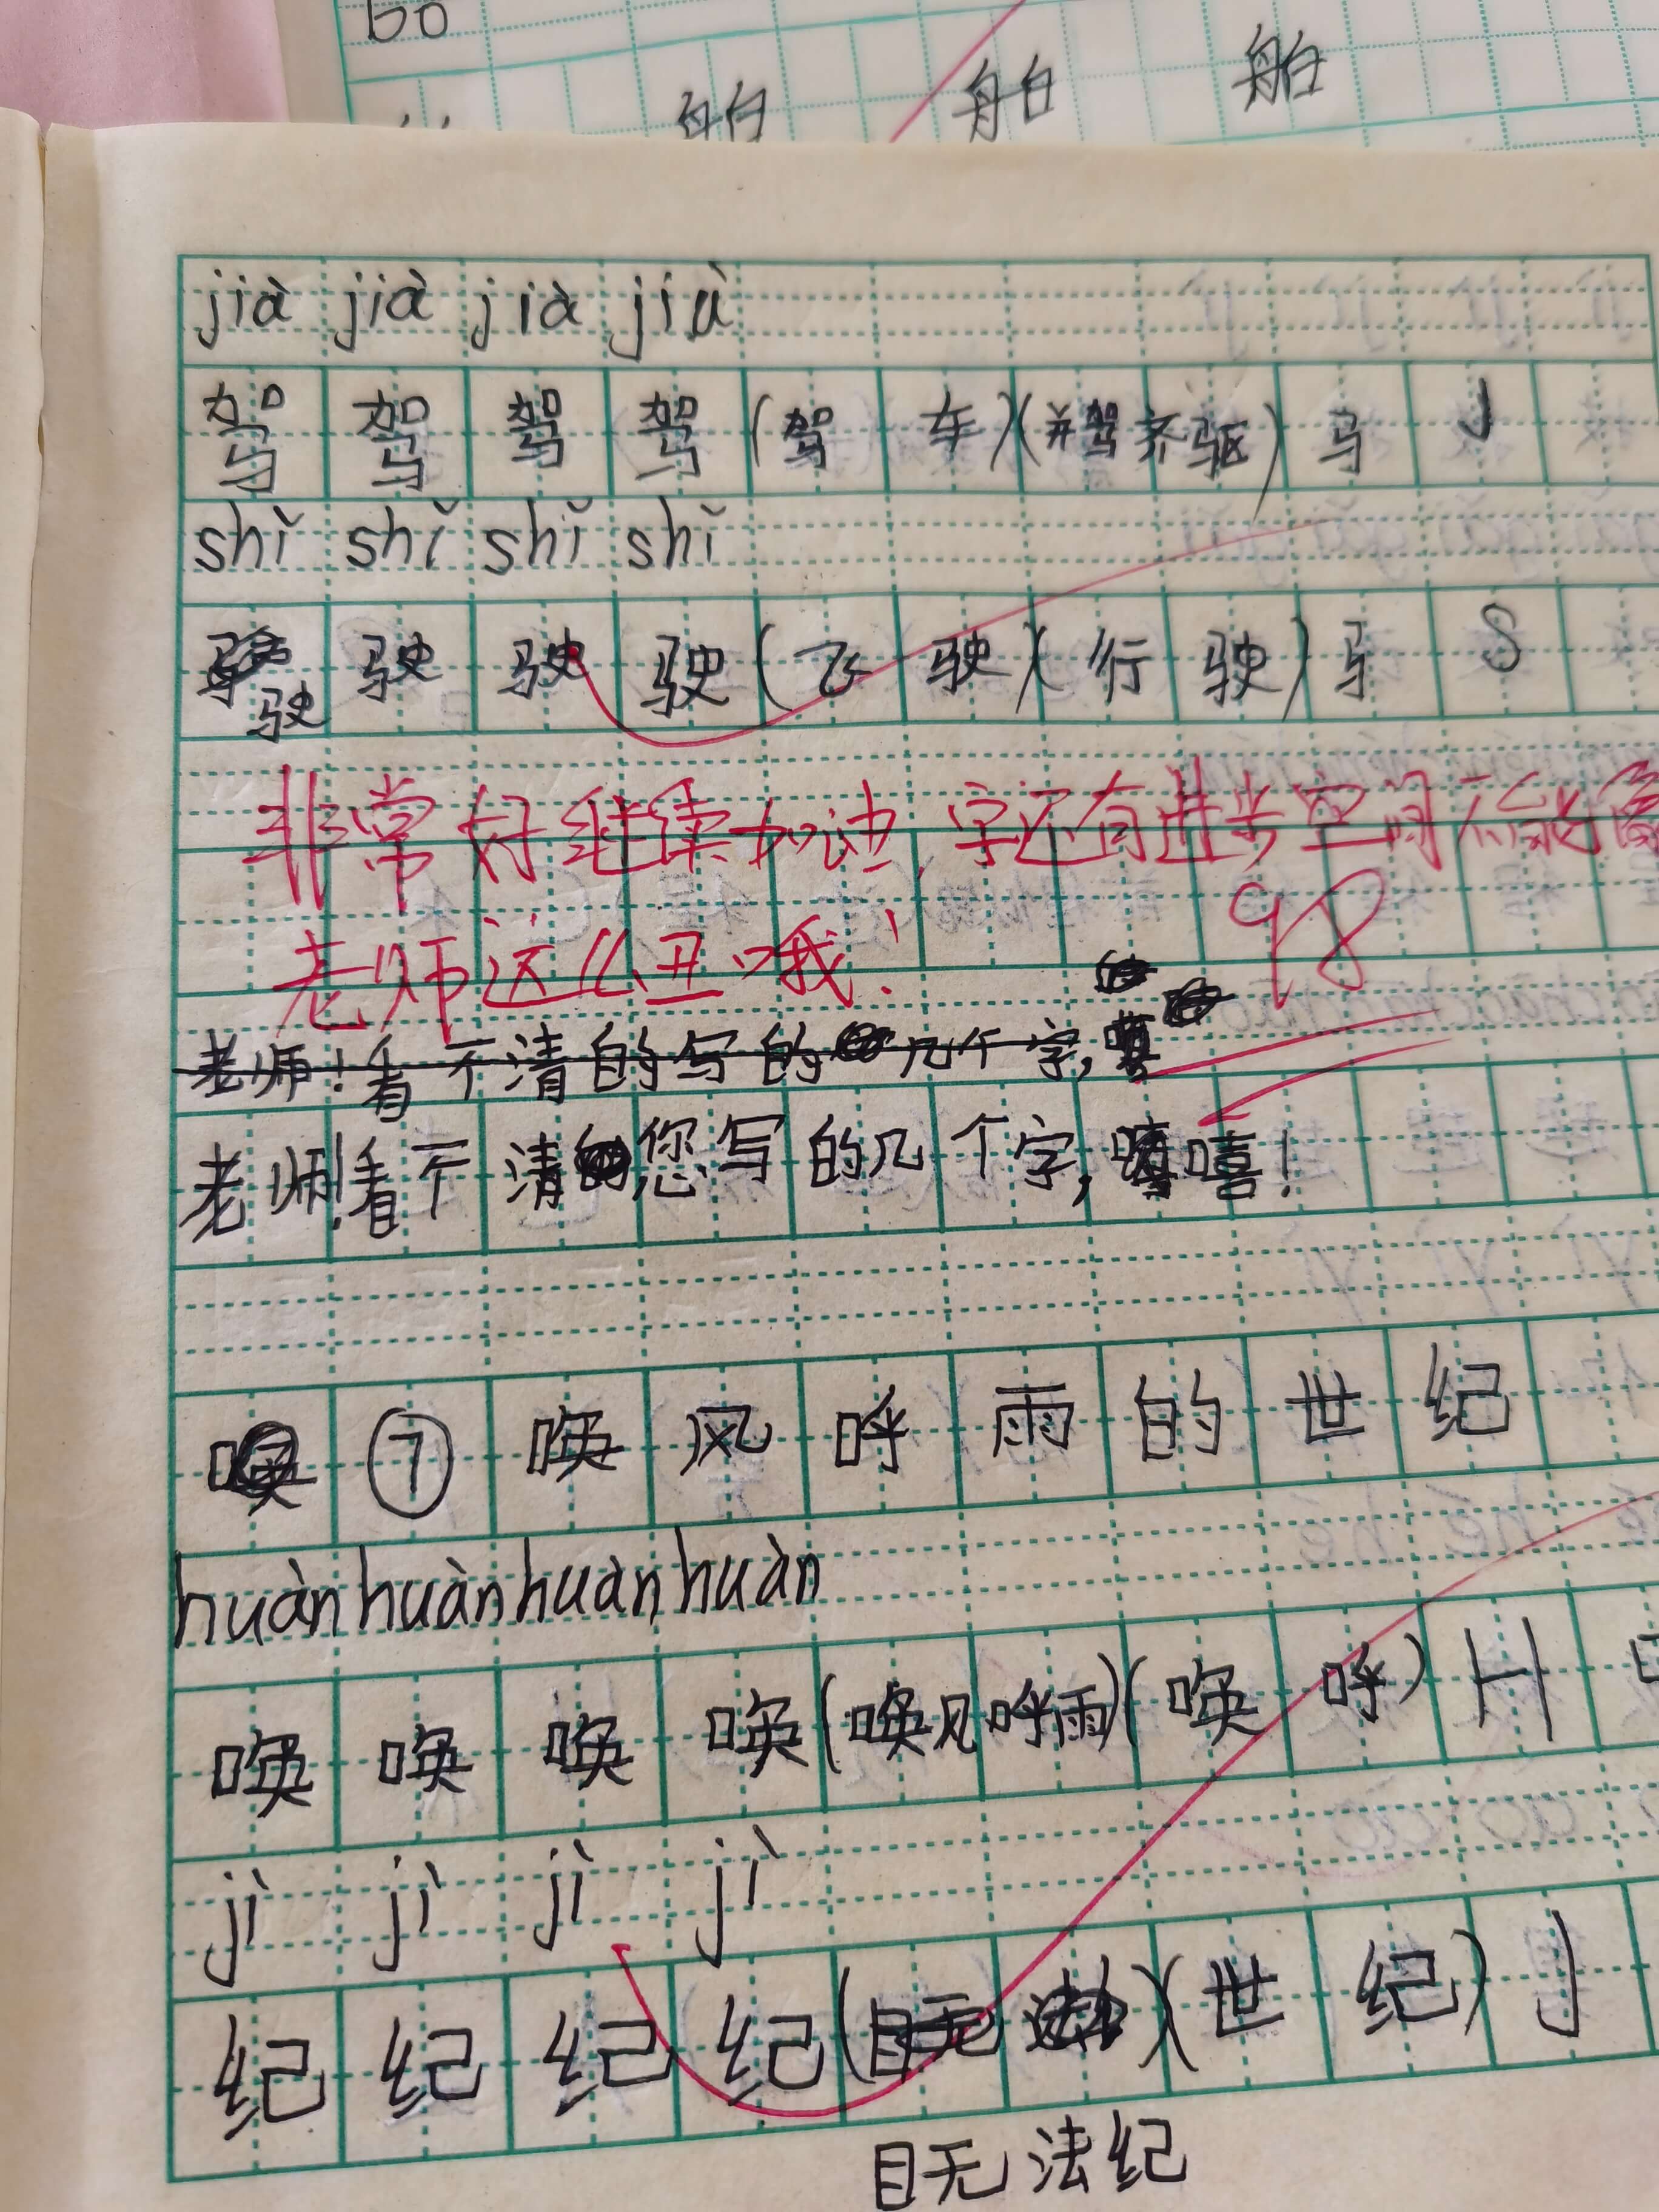 bo
船 船 船
jià jià jià jià
驾 驾 驾 驾 (驾 车)(并驾齐驱) 马 J
shǐ shǐ shǐ shǐ
驶 驶 驶 驶 (飞 驶)(行 驶) 马 S
非常好继续加油,字还有进步空间不能像
老师这么丑哦! 98
老师!看不清的写的 几个字,
老师!看不清 您写的几个字, 嘻!
唤 ⑦ 唤 风 呼 雨 的 世 纪
huàn huàn huàn huàn
唤 唤 唤 唤 (唤风呼雨)(唤 呼) H 口
jì jì jì jì
纪 纪 纪 纪 (目无 法 )(世 纪) J
目无法纪